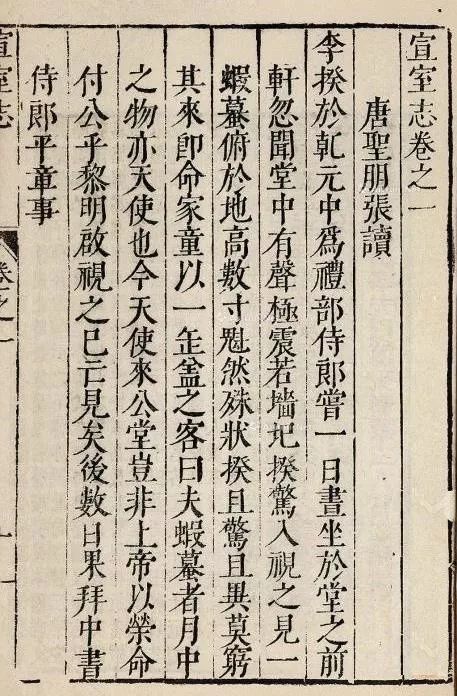 宣室志卷之一
唐聖朋張讀
李揆於乹元中爲禮部侍郎嘗一日晝坐於堂之前
軒忽聞堂中有聲極震若墻圯揆驚入視之見一
蝦蟇俯於地高數寸魁然殊狀揆且驚且異莫窮
其來即命家童以一缶盖之客曰夫蝦蟇者月中
之物亦天使也今天使來公堂豈非上帝以榮命
付公乎黎明啟視之已亡見矣後數日果拜中書
侍郎平童事
宣室志
卷之一
一